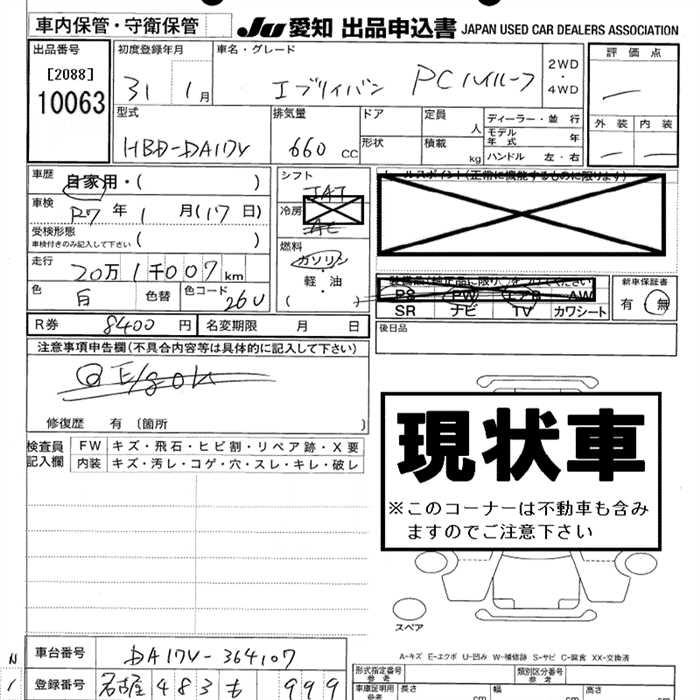 車内保管・守衛保管
JU 愛知 出品申込書 JAPAN USED CAR DEALERS ASSOCIATION
出品番号
[2088]
10063
初度登録年月
31 1月
車名・グレード
エブリイバン PCハイルーフ
2WD
・
4WD
評価点
外装 内装
型式
HBD-DA17V
排気量
660 CC
ドア
形状
定員
人
積載
kg
ディーラー・並行
モデル年式 年
ハンドル 左・右
車歴
自家用・( )
車検
R7年1月(17日)
受検形態
車検付きのみ記入して下さい ( )
走行
20万1千007km
色
白
色替
色コード
26U
シフト
冷房
燃料
ガソリン
・
軽・油
( )
セールスポイント(正常に機能するものに限ります)
PS PW エアB AW
SR ナビ TV カワシート
新車保証書
有 無
後日品
R券 8400円 名変期限 月 日
注意事項申告欄(不具合内容等は具体的に記入して下さい)
修復歴 有〔箇所 〕
検査員記入欄
FW キズ・飛石・ヒビ割・リペア跡・X要
内装 キズ・汚レ・コゲ・穴・スレ・キレ・破レ
現状車
※このコーナーは不動車も含み
ますのでご注意下さい
スペア
A-キズ E-エクボ U-凹み W-補修跡 S-サビ C-腐食 XX-交換済
車台番号
DA17V-364107
登録番号
名古屋 483 も 999
形式指定番号
参考
類別区分番号
参考
車庫証明用
参考
長さ cm
幅 cm
高さ cm